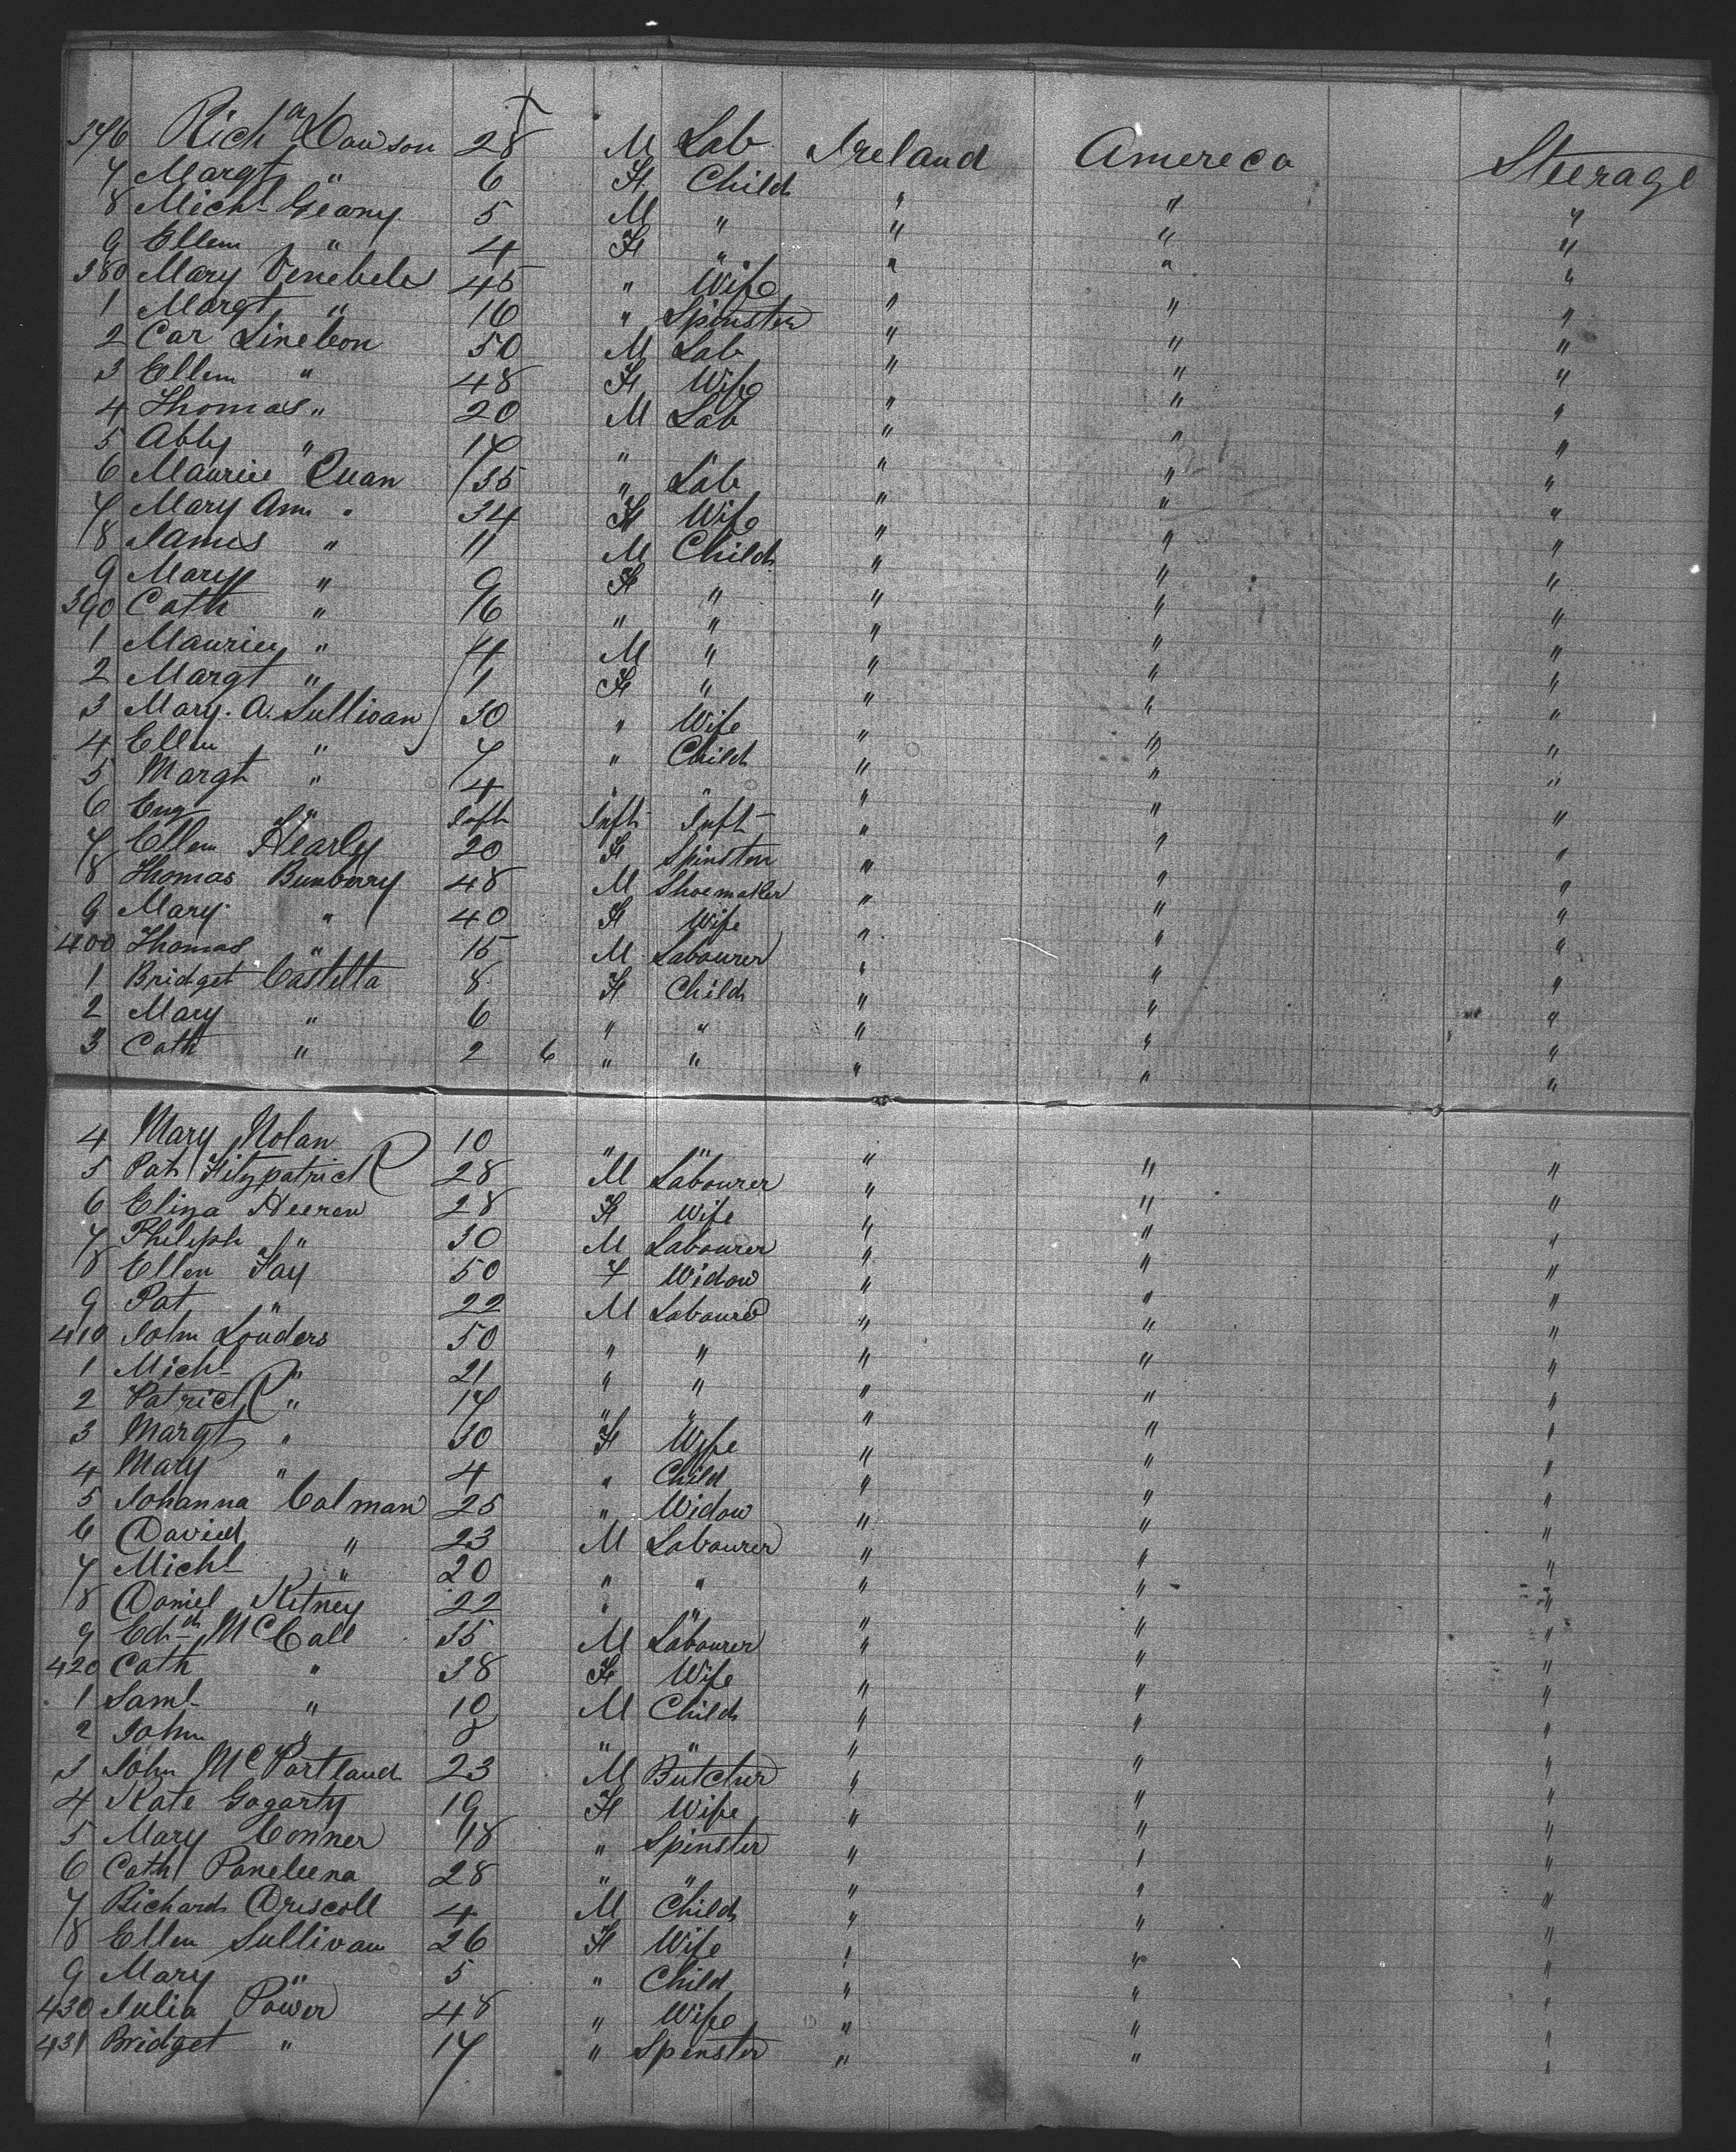 376 Richd Dawson 28 M Lab Ireland Amereca Steerage
7 Margt " 6 F Child " " "
8 Michl Geany 5 M " " " "
9 Ellen " 4 F " " " "
380 Mary Venebels 45 " Wife " " "
1 Margt " 16 " Spinster " " "
2 Car Lineleon 50 M Lab " " "
3 Ellen " 48 F Wife " " "
4 Thomas " 20 M Lab " " "
5 Abby " 17 " " " " "
6 Maurice Quan 35 " Lab " " "
7 Mary Ann " 34 F Wife " " "
8 James " 11 M Child " " "
9 Mary " 9 F " " " "
390 Cath " 6 " " " " "
1 Maurice " 4 M " " " "
2 Margt " 1 F " " " "
3 Mary. A. Sullivan 30 " Wife " " "
4 Ellen " 7 " Child " " "
5 Margt " 4 " " " " "
6 Eug " Inft Inft Inft " " "
7 Ellen Hearly 20 F Spinster " " "
8 Thomas Bunberry 48 M Shoemaker " " "
9 Mary " 40 F Wife " " "
400 Thomas " 15 M Labourer " " "
1 Bridget Castella 8 F Child " " "
2 Mary " 6 " " " " "
3 Cath " 2 6 " " " " "
4 Mary Nolan 10 " " " " "
5 Pat Fitzpatrick 28 M Labourer " " "
6 Eliza Heeren 28 F Wife " " "
7 Phileph " 30 M Labourer " " "
8 Ellen Fay 50 F Widow " " "
9 Pat " 22 M Labourer " " "
410 John Louders 50 " " " " "
1 Michl " 21 " " " " "
2 Patrick " 17 " " " " "
3 Margt " 30 F Wife " " "
4 Mary " 4 " Child " " "
5 Johanna Colman 25 " Widow " " "
6 David " 23 M Labourer " " "
7 Michl " 20 " " " " "
8 Daniel Kitney 22 " " " " "
9 Edwd McCall 35 M Labourer " " "
420 Cath " 38 F Wife " " "
1 Saml " 10 M Child " " "
2 John " 8 " " " " "
3 John McPartland 23 M Butcher " " "
4 Kate Gogarty 19 F Wife " " "
5 Mary Conner 18 " Spinster " " "
6 Cath Paneleena 28 " " " " "
7 Richard Driscoll 4 M Child " " "
8 Ellen Sullivan 26 F Wife " " "
9 Mary " 5 " Child " " "
430 Julia Power 48 " Wife " " "
431 Bridget " 17 " Spenster " " "